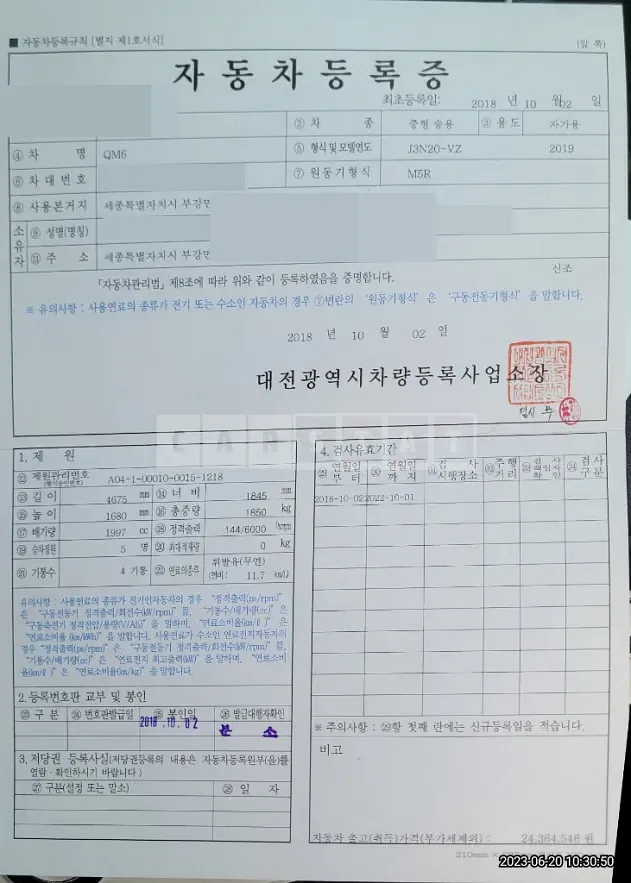 ■ 자동차등록규칙 [별지 제1호서식]
(앞 쪽)
자동차등록증
최초등록일: 2018 년 10 월 02 일
② 차 종 중형 승용 ③ 용 도 자가용
④ 차 명 QM6 ⑤ 형식 및 모델연도 J3N20-VZ 2019
⑥ 차 대 번 호 ⑦ 원 동 기 형 식 M5R
⑧ 사용본거지 세종특별자치시 부강면
소유자 ⑨ 성명(명칭)
⑪ 주 소 세종특별자치시 부강면
「자동차관리법」 제8조에 따라 위와 같이 등록하였음을 증명합니다.
신조
※ 유의사항 : 사용연료의 종류가 전기 또는 수소인 자동차의 경우 ⑦번란의 '원동기형식' 은 '구동전동기형식' 을 말합니다.
2018 년 10 월 02 일
대전광역시차량등록사업소장
CARSTAT
1. 제 원
⑫ 제원관리번호 A04-1-00010-0015-1218
(형식승인번호)
⑬ 길 이 4675 mm ⑭ 너 비 1845 mm
⑮ 높 이 1680 mm ⑯ 총중량 1850 kg
⑰ 배기량 1997 cc ⑱ 정격출력 144/6000
⑲ 승차정원 5 명 ⑳ 최대적재량 0 kg
㉑ 기통수 4 기통 ㉒ 연료의종류 휘발유(무연)
(연비: 11.7 km/ℓ)
유의사항 : 사용연료의 종류가 전기인자동차의 경우 "정격출력(ps/rpm)"
은 "구동전동기 정격출력/회전수(kW/rpm)" 를, "기통수/배기량(cc)" 은
"구동축전기 정격전압/용량(V/Ah)" 을 말하며, "연료소비율(km/ℓ)" 은
"연료소비율 (km/kWh)" 을 말합니다. 사용연료가 수소인 연료전지자동차의
경우 "정격출력(ps/rpm)" 은 "구동전동기 정격출력/회전수(kW/rpm)" 를,
"기통수/배기량(cc)" 은 "연료전지 최고출력(kW)" 을 말하며, "연료소비
율(km/ℓ)" 은 "연료소비율(km/kg)" 을 말합니다.
2. 등록번호판 교부 및 봉인
㉓ 구 분 ㉔ 번호판발급일 ㉕ 봉인일 ㉖ 발급대행자확인
2018 .10. 02 본 소
3. 저당권 등록사실(저당권등록의 내용은 자동차등록원부(을)를
열람 · 확인하시기 바랍니다)
㉗ 구분(설정 또는 말소) ㉘ 일 자
4. 검사유효기간
㉙ 연월일 부 터 ㉚ 연월일 까 지 ㉛ 검 사 시행장소 ㉜ 주행 거리 ㉞ 검사 구분
2018-10-02 2022-10-01
※ 주의사항 : ㉙항 첫째 란에는 신규등록일을 적습니다.
비고
자동차 출고(취득)가격(부가세제외) : 24,364,546 원
2023-06-20 10:30:50